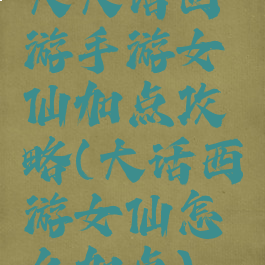 大大话西
游手游女
仙加点攻
略(大话西
游女仙怎
么加点)